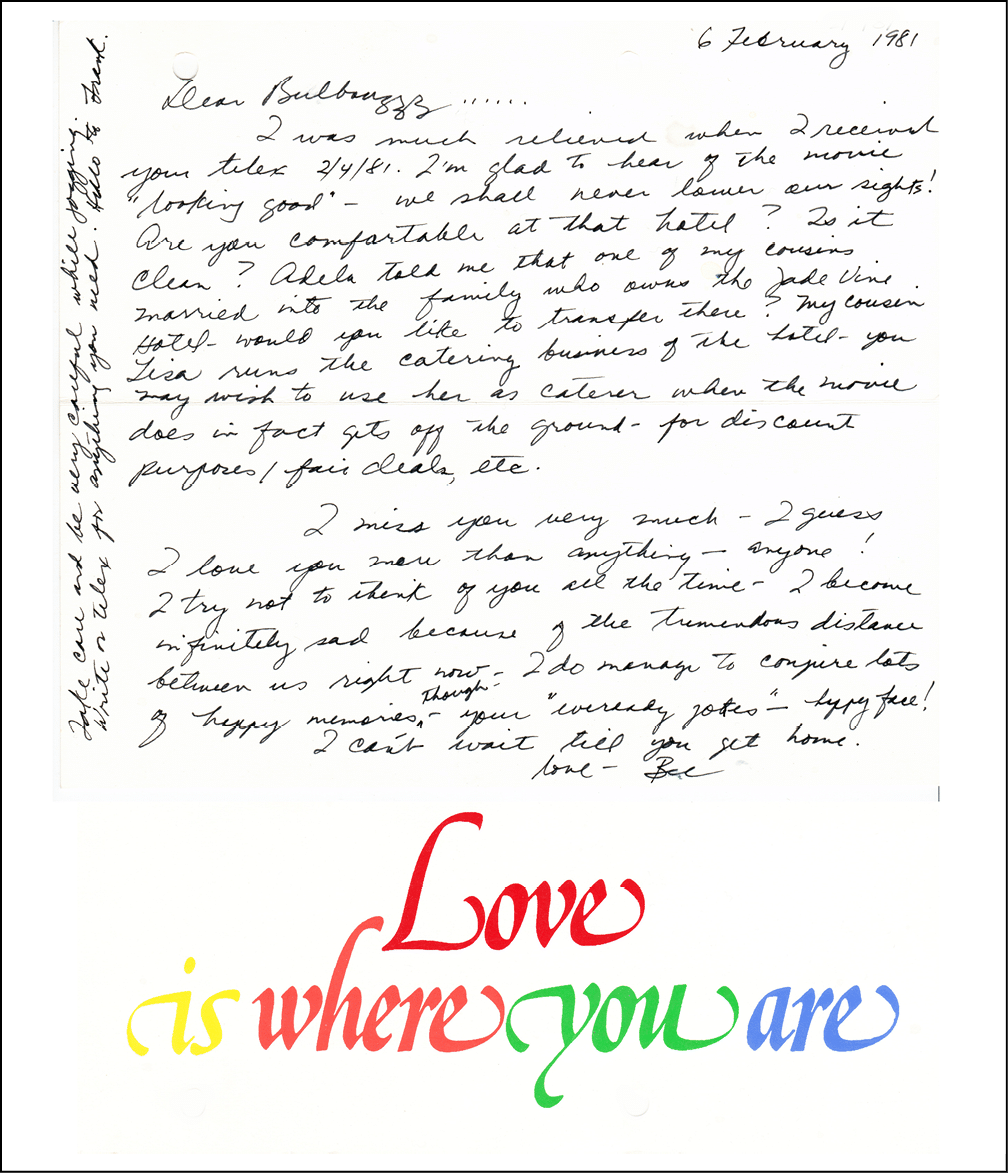 6 February 1981
Dear Bulbouzzz ......
I was much relieved when I received
your telex 2/4/81. I'm glad to hear of the movie
"looking good" - we shall never lower our sights!
Are you comfortable at that hotel? Is it
clean? Adela told me that one of my cousins
married into the family who owns the Jade Vine
Hotel - would you like to transfer there? My cousin
Lisa runs the catering business of the hotel - you
may wish to use her as caterer when the movie
does in fact gets off the ground - for discount
purposes / fair deals, etc.
I miss you very much - I guess
I love you more than anything - anyone!
I try not to think of you all the time - I become
infinitely sad because of the tremendous distance
between us right now - I do manage to conjure lots
of happy memories, though - your "iveready jokes" - hppy face!
I can't wait till you get home.
love - Bee
Take care and be very careful while jogging.
Write or telex for anything you need. Hello to Frank.
Love
is where you are